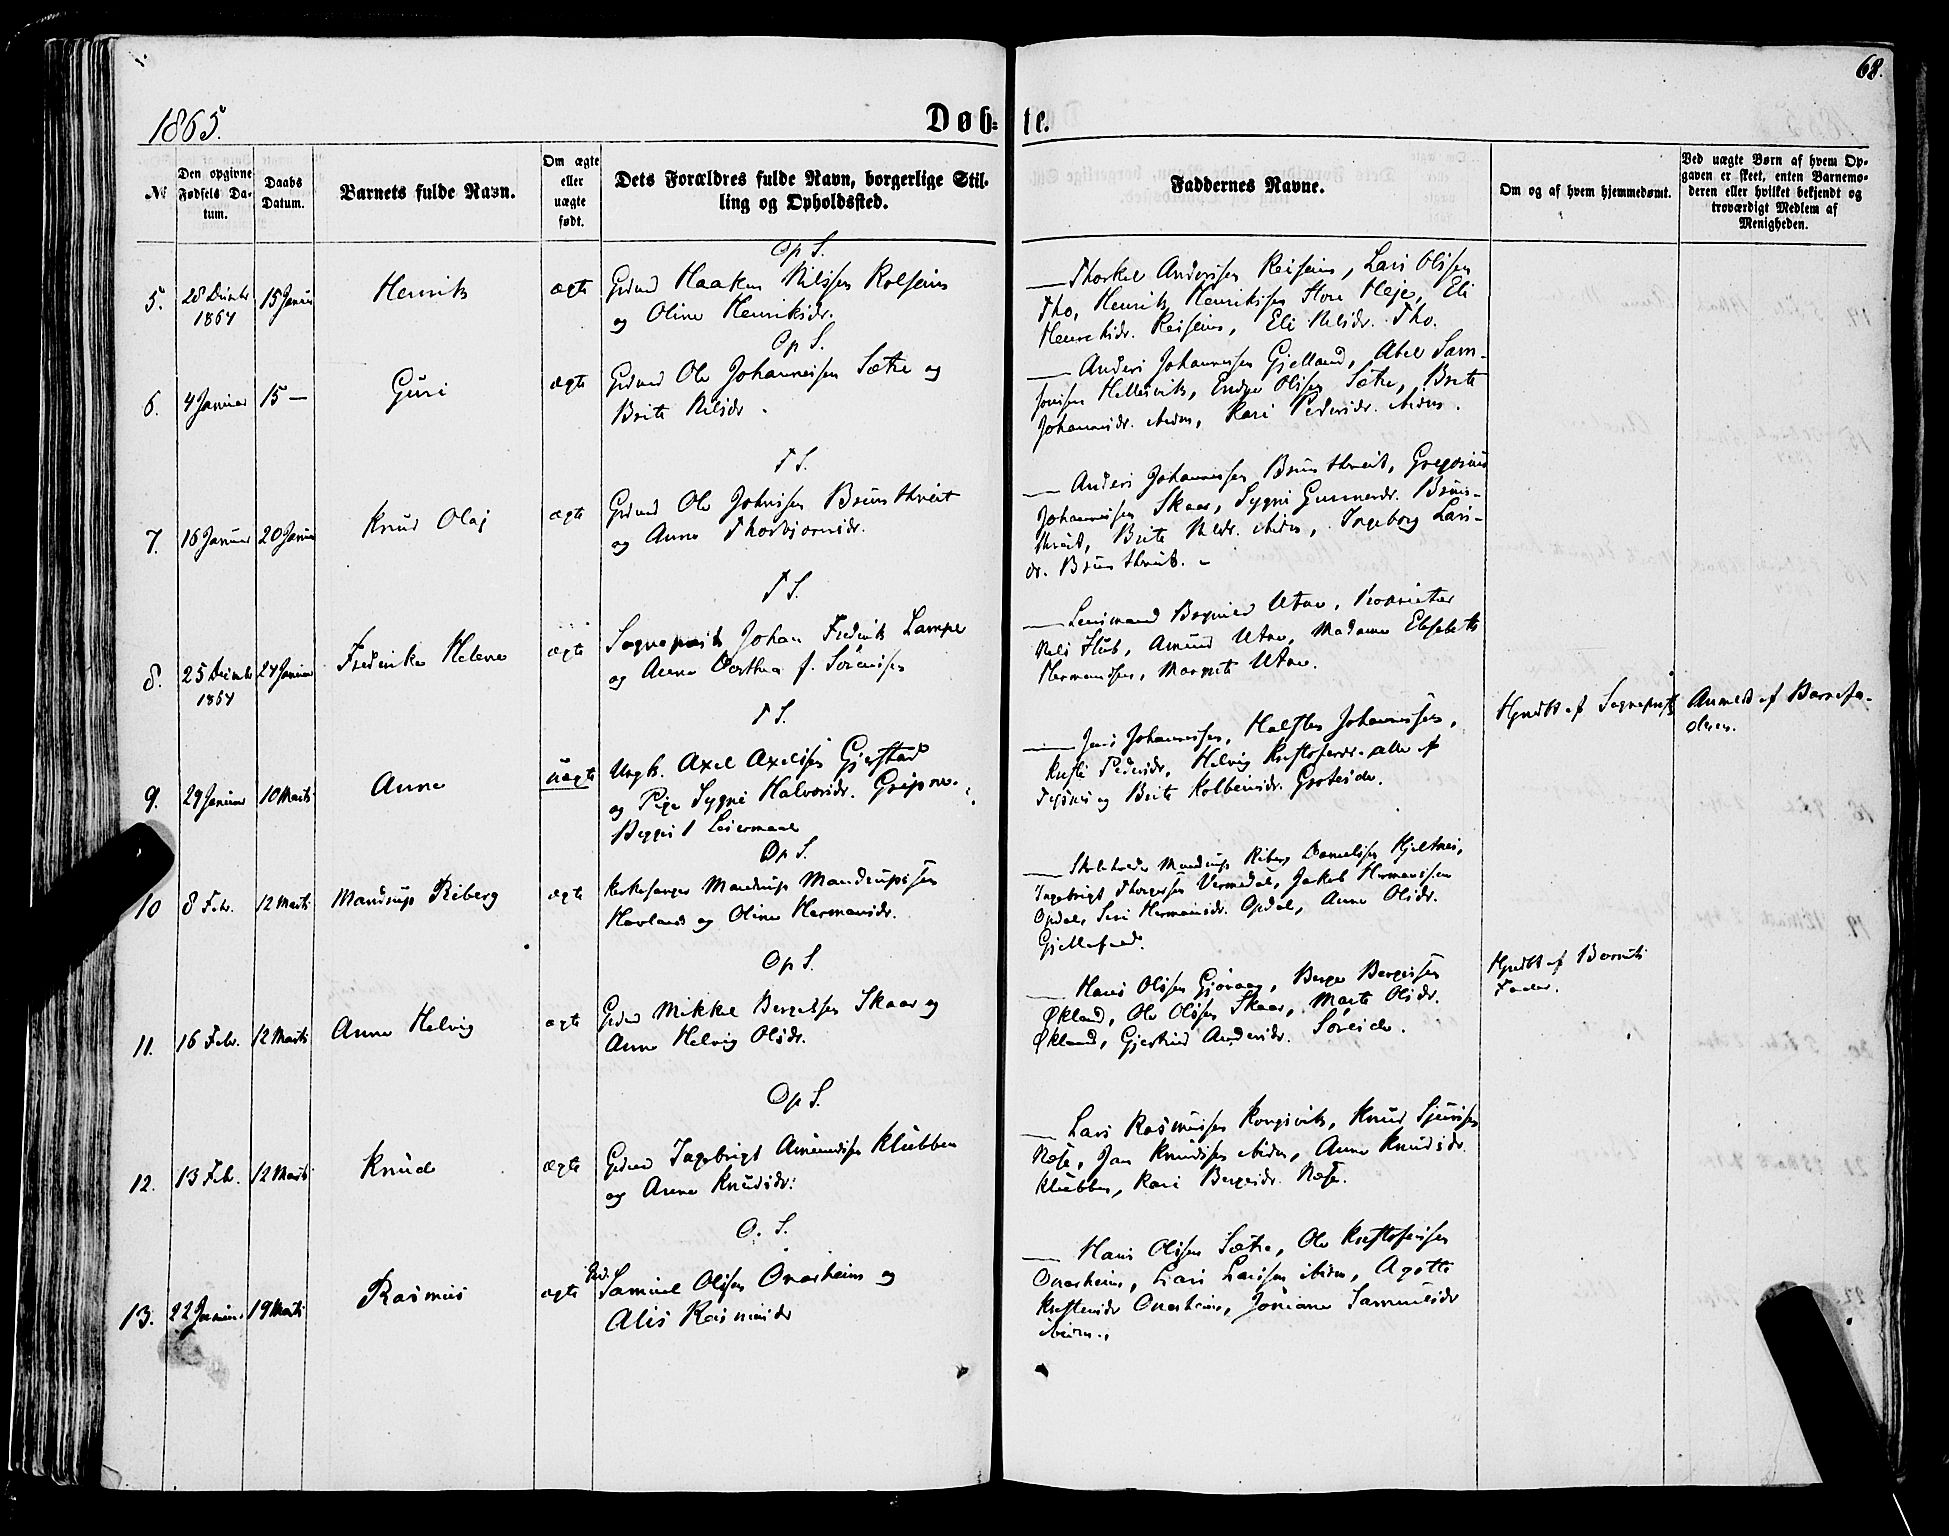 68.
1865.
Døb-te.
№
Den opgivne Fødsels Datum.
Daabs Datum.
Barnets fulde Navn.
Om ægte eller uægte født.
Dets Forældres fulde Navn, borgerlige Stilling og Opholdssted.
Faddernes Navne.
Om og af hvem hjemmedøbt.
Ved uægte Børn af hvem Opgaven er skeet, enten Barnemoderen eller hvilket bekjendt og troværdigt Medlem af Menigheden.
Op S.
5. 28 Decmbr 1864 15 Januar Henrik ægte
Grdmd Haaken Nilssen Rolfsnes
og Oline Henriksdr.
— Thorkel Anderssen Reisæin, Lars Olsen
Tho, Henrik Henrikssen Store Høje, Eli
Henriksdr. Reisæin, Eli Nilsdr. Tho.
Op S.
6. 4 Januar 15 — Guri ægte
Grdmd Ole Johannessen Sætre og
Brite Nilsdr.
— Anders Johannessen Gjelland, Abel Sam-
sonsen Hellesvik, Endre Olsen Sætre, Brite
Johannesdr. ibidm, Kari Pedersdr. ibidm.
T S.
7. 16 Januar 20 Januar Knud Olaj ægte
Grdmd Ole Johnssen Bruntveit
og Anna Thorbjørnsdr.
— Anders Johannessen Brunthveit, Gregorius
Johannessen Skaar, Sygni Gunnarsdr. Brun-
thveit, Brite Nilsdr. ibidm, Ingeborg Lars-
dr. Brunthveit.
T S.
8. 25 Decmbr 1864 24 Januar Fredrikke Helene ægte
Sognepræst Johan Fredrik Lampe
og Anna Dorthea f. Sørensen
— Lensmand Utne, Proprietær
Nils Hub, Amund Utne, Madame Elisabeth
Hermansen, Margrete Utne.
T S.
9. 29 Januar 10 Marts Anne uægte
Ungk. Axel Axelsen Gjerstad
og Pige Sygni Halvorsdr. Gripne.
Begges 1 Leiermaal
— Jens Johannessen, Johannessen,
Pedersdr, Helvig Kristofersdr. alle af
og Brite Kolbeinsdr. Groteide.
Hjmdbt af Sognepræst
Anmeldt af Barnefa-
deren.
Op S.
10 8 Febr. 12 Marts Mandrup Riberg ægte
Kirkesanger Mandrup Mandrupssen
Hovland og Oline Hermansdr.
— Skoleholder Mandrup Riberg Danielssen Hjeltnes,
Ingebrigt Thorgersen Vermedal, Jakob Hermansen
Opdal, Siri Hermansdr. Opdal, Anna Olsdr.
Op S.
11. 16 Febr. 12 Marts Anne Helvig ægte
Grdmd Mikkel Bergessen Skaar og
Anna Helvig Olsdr.
— Hans Olsen Gjøvaag, Berge Bergessen
Økland, Ole Olsen Skaar, Marte Olsdr.
Økland, Gjertrud Andersdr. Søreide.
Hjmdbt af Barnets
Fader.
Op S.
12. 13 Febr. 12 Marts Knud ægte
Grdmd Ingebrigt Amundsen Klubben
og Anna Knudsdr.
— Lars Rasmussen Kongsvik, Knud Sjursen
Næse, Jan Knudssen ibidm, Anna Knudsdr.
Klubben, Kari Bergesdr. Næse.
O. S.
13. 22 Januar 19 Marts Rasmus ægte
Grd. Samuel Olsen Onarheim og
Alis Rasmusdr
— Hans Olsen Sætre, Ole Kristofersen
Onarheim, Lars Larsen ibidm, Agotte
Kristensdr Onarheim, Josiane Samuelsdr
ibidm.